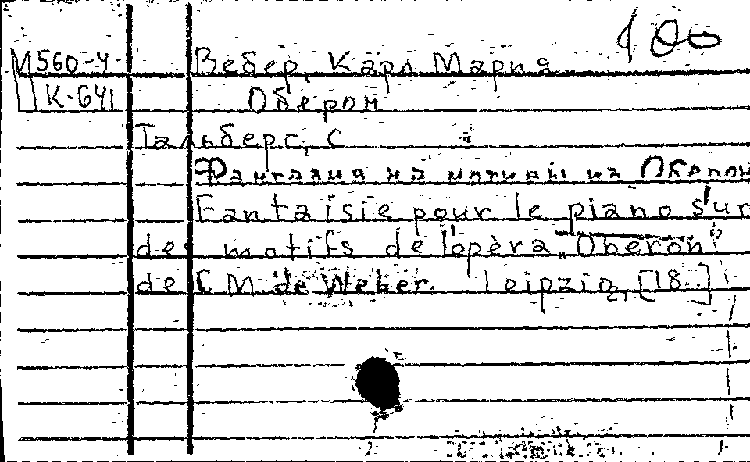 100
М560-4 Вебер, Карл Мария
К-641 Оберон
Тальберг, С
Фантазия на мотивы из Оберон
Fantaisie pour le piano sur
des motifs de l'opèra "Oberon"
de C M. de Weber. Leipzig, [18..]